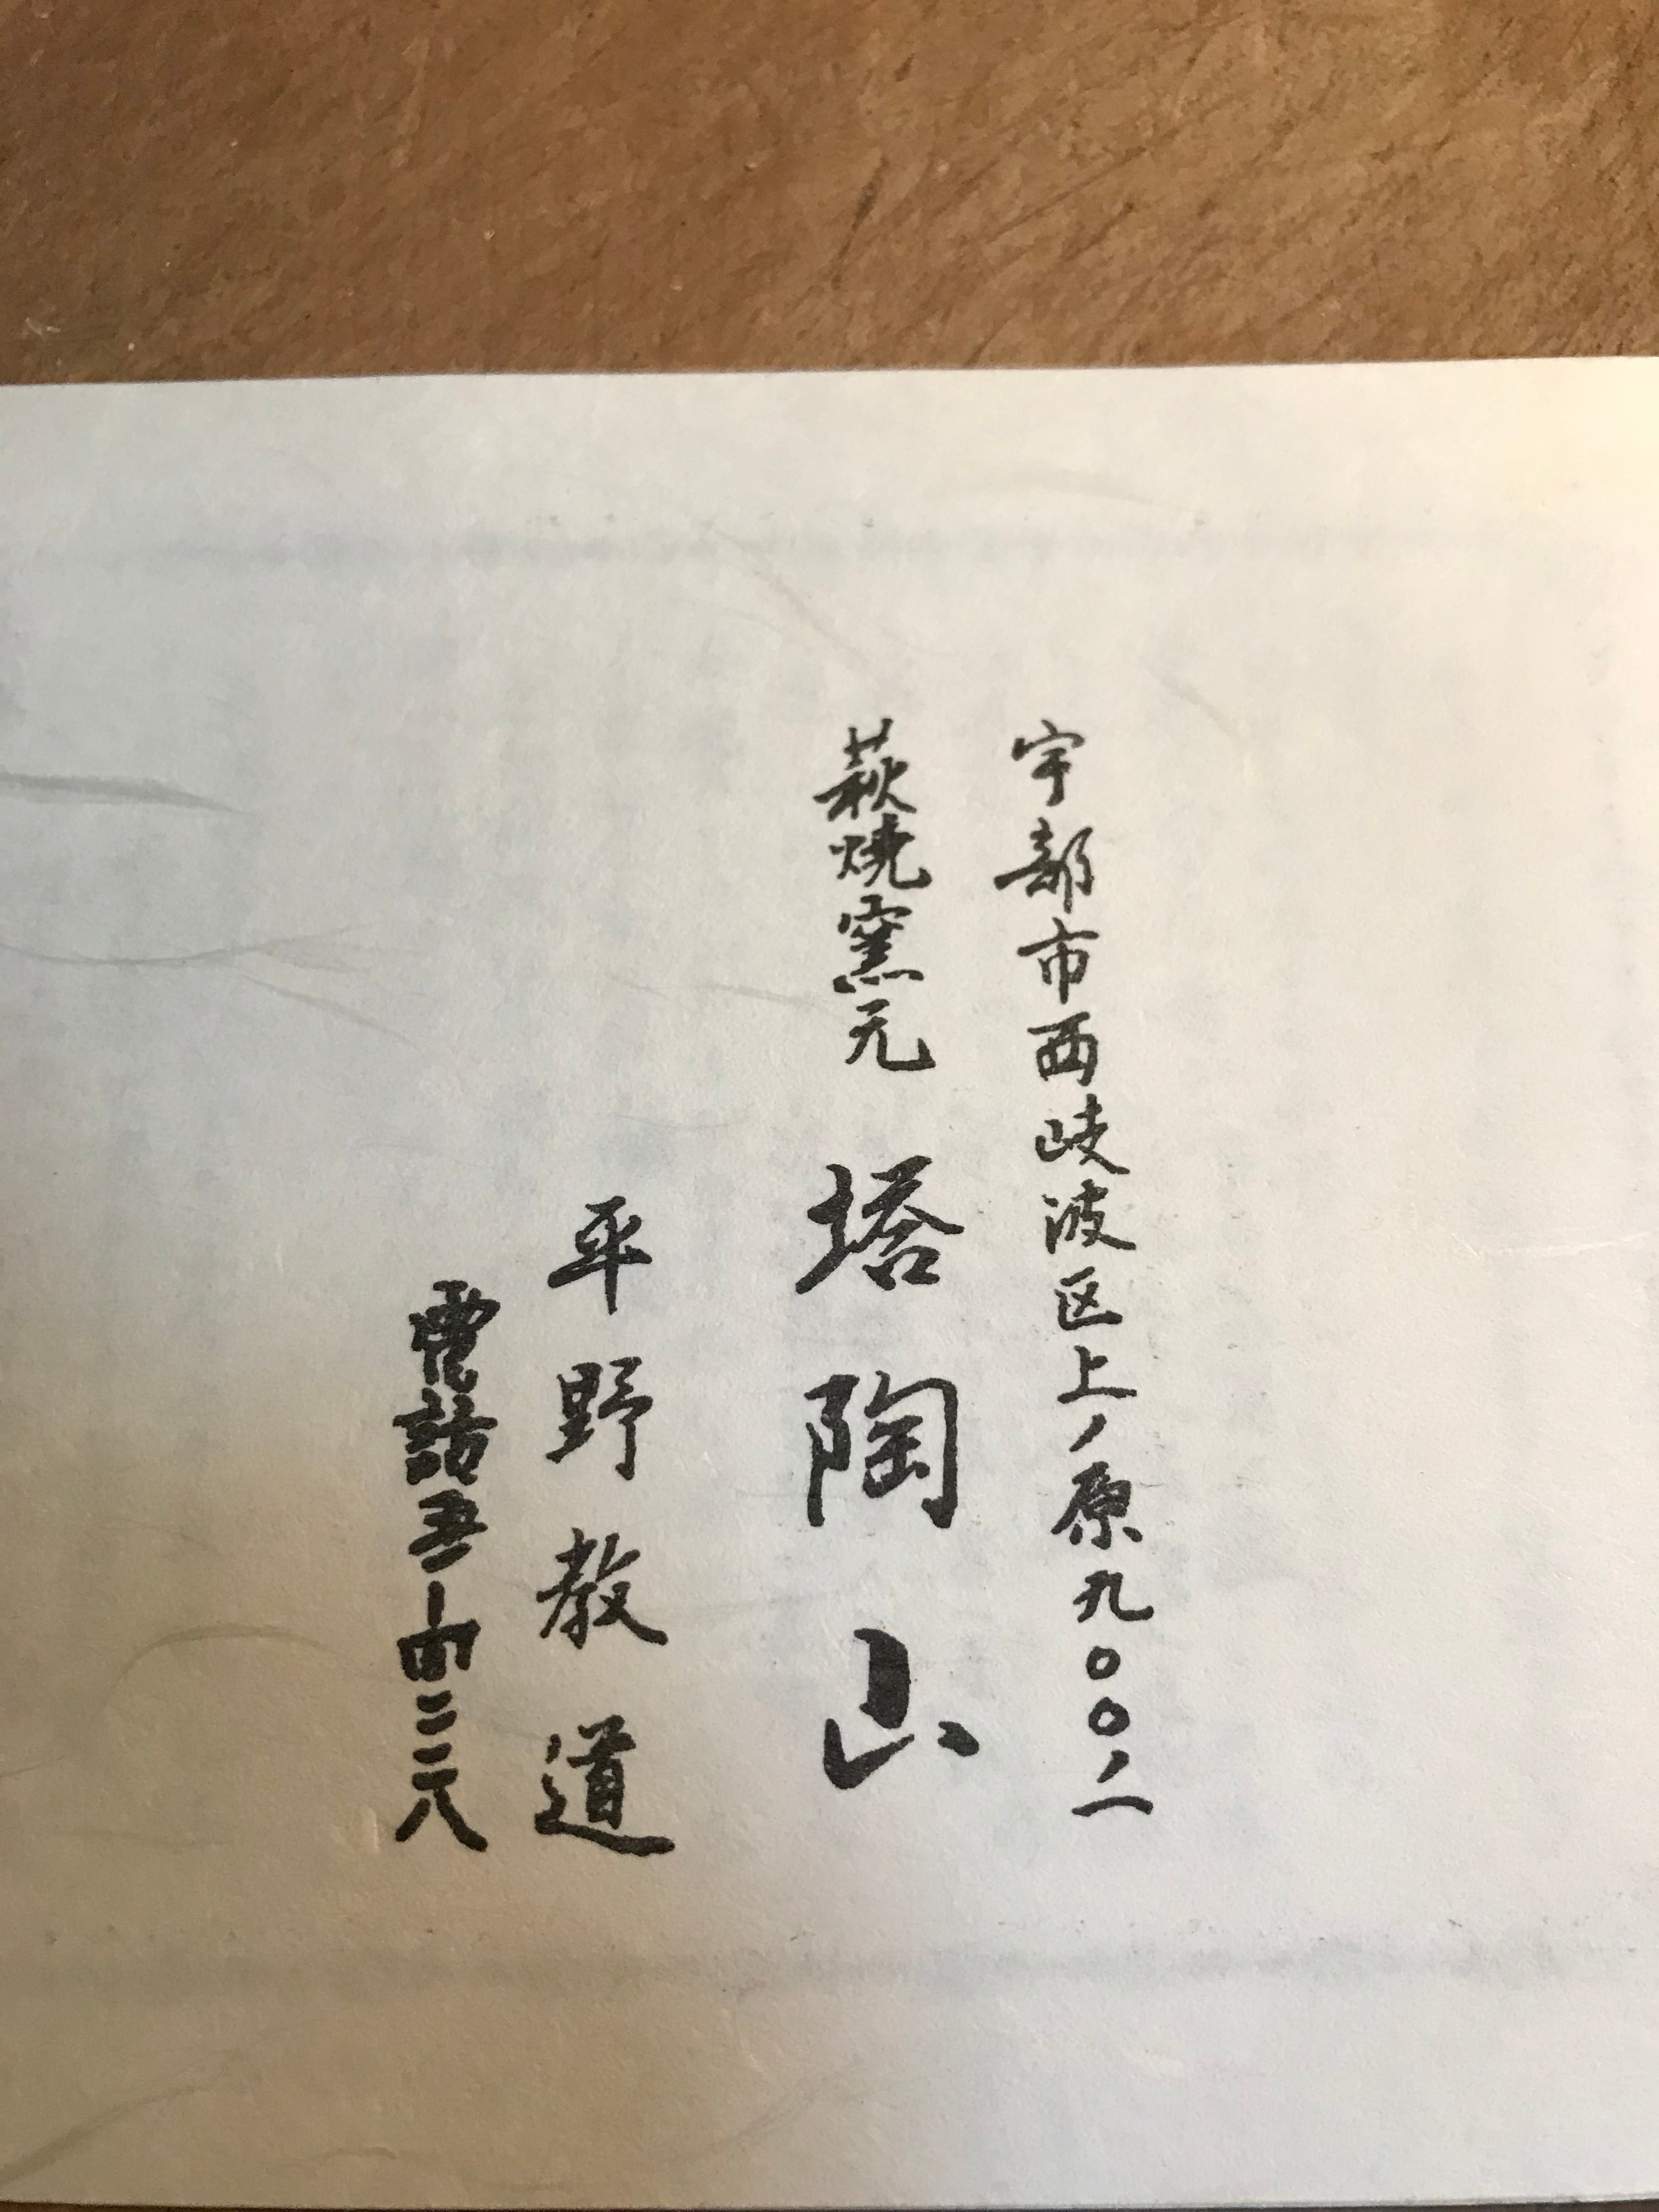 宇部市西岐波区上ノ原九〇〇ノ一
萩焼窯元 塔陶山
平野教道
電話五一ー四二二八